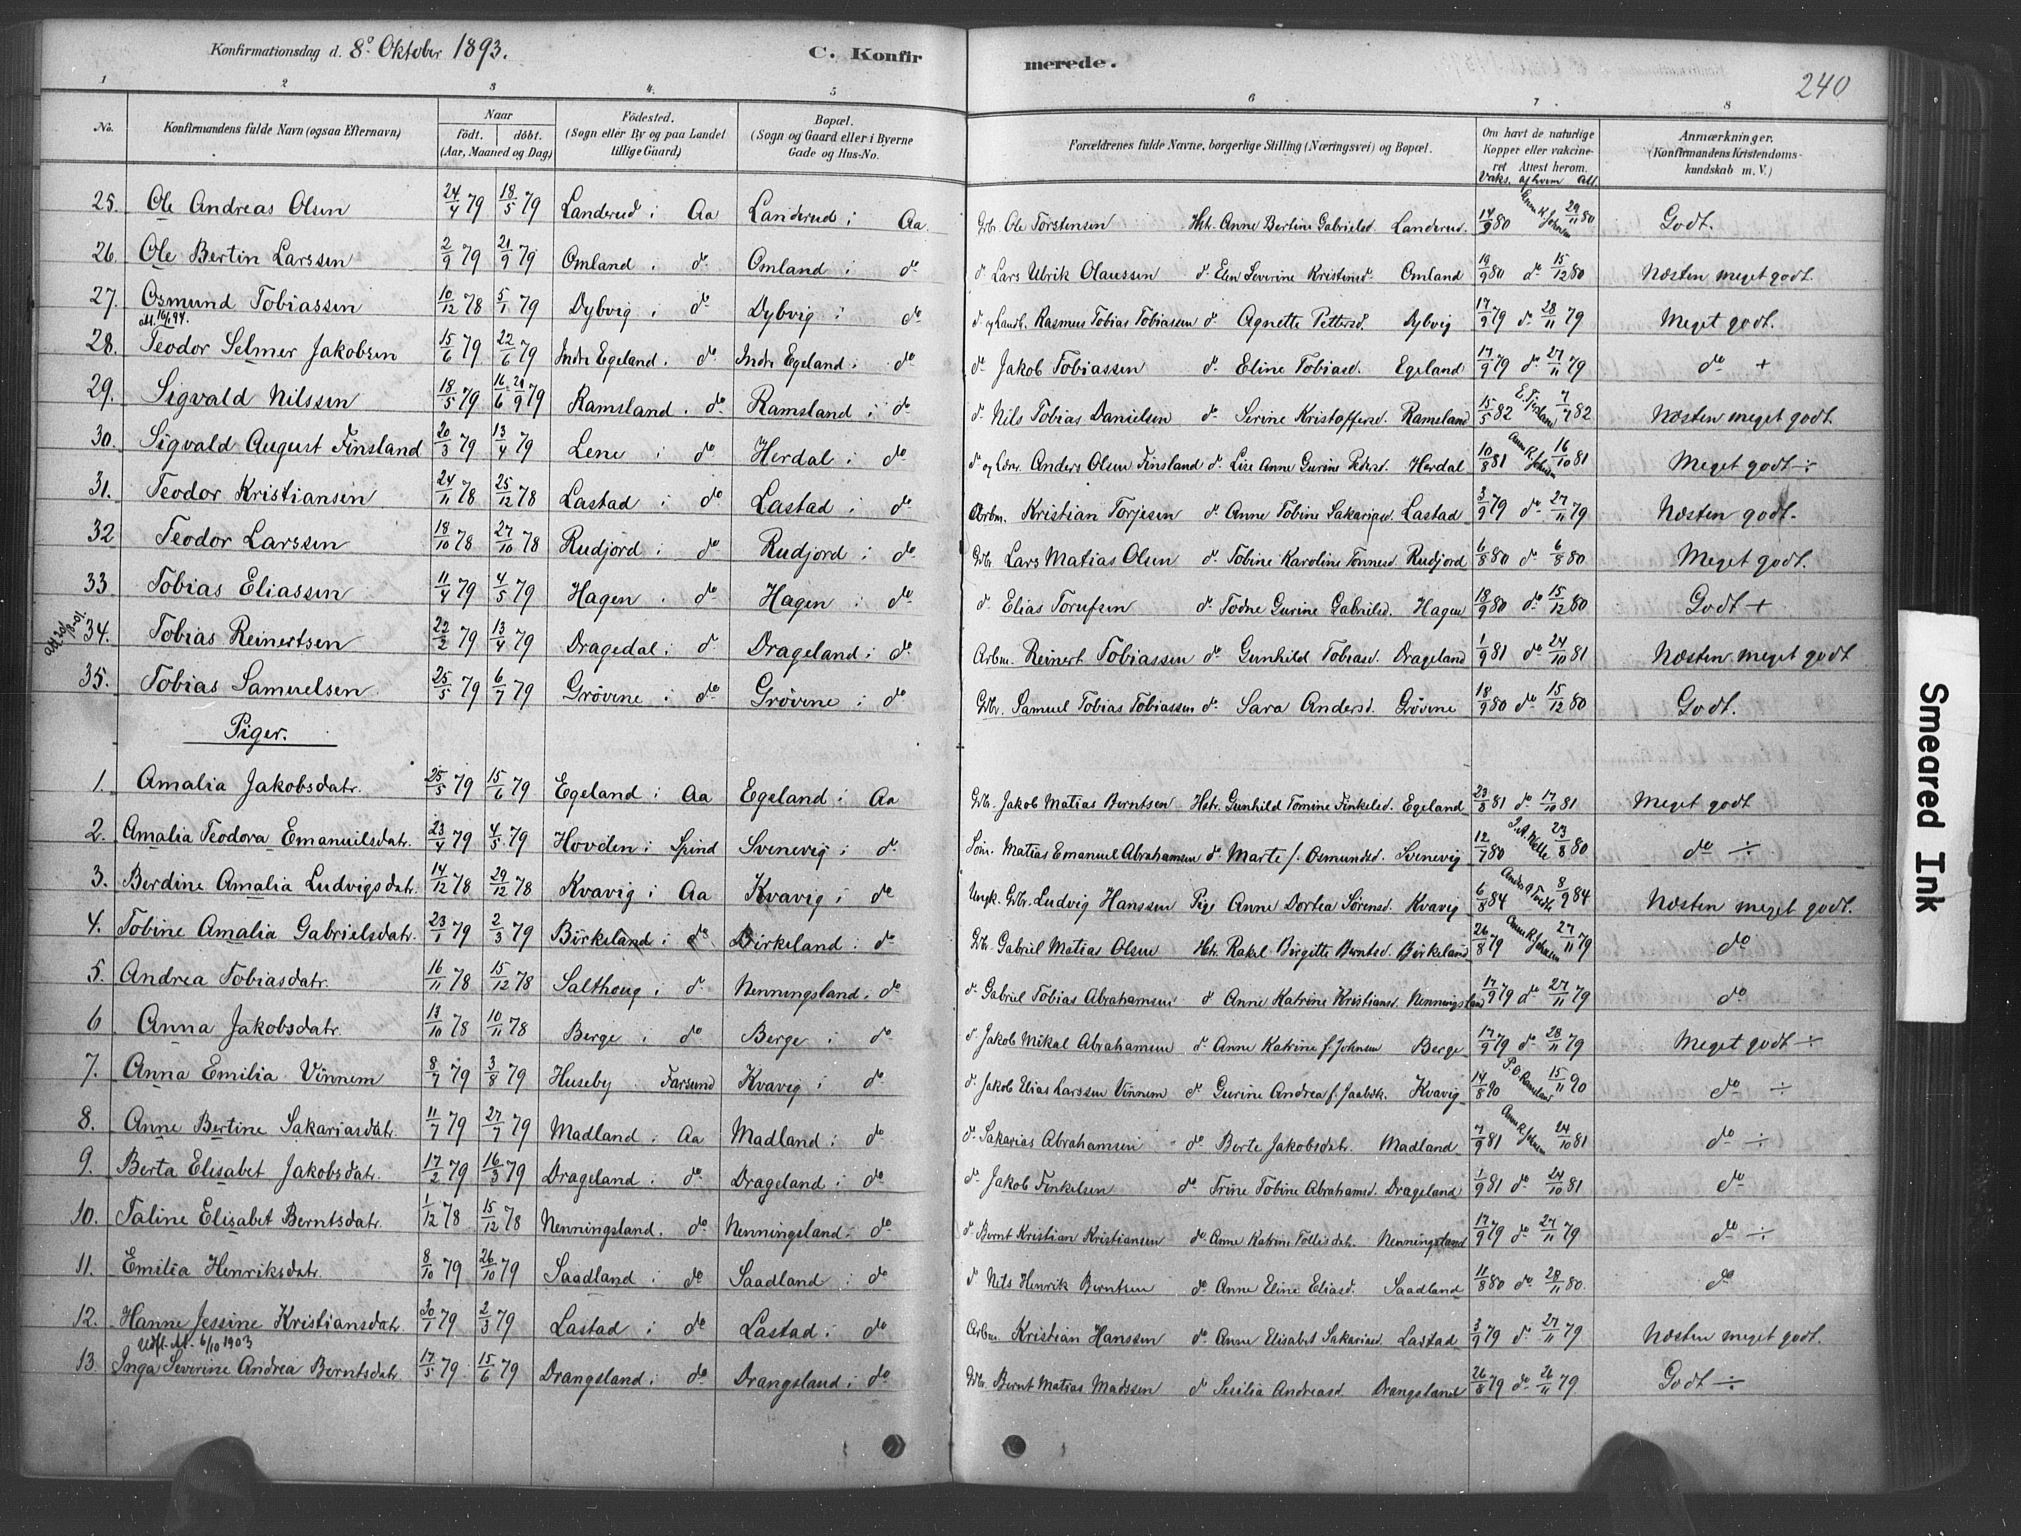 Konfirmationsdag d. 8º Oktober 1893.
C. Konfirmerede.
240
1 2 3 4. 5 6 7 8
No. Konfirmandens fulde Navn (ogsaa Efternavn) Naar födt. döbt. (Aar, Maaned og Dag) Födested. (Sogn eller By og paa Landet tillige Gaard) Bopæl. (Sogn og Gaard eller i Byerne Gade og Hus-No. Forældrenes fulde Navne, borgerlige Stilling (Næringsvei) og Bopæl. Om havt de naturlige Kopper eller vakcineret Attest herom. Anmærkninger. (Konfirmandens Kristendomskundskab m. V.)
Vaks. af hvem att.
25. Ole Andreas Olsen 24/4 79 18/5 79 Landerud i Aa Landerud i Aa Gbr. Ole Torstensen Hstr. Anne Bertine Gabrielsd. Landerud. 14/9 80 29/11 80 Godt.
26. Ole Bertin Larssen 2/9 79 21/9 79 Omland i do Omland i do do Lars Ulrik Olaussen do Elen Severine Kristensd. Omland 19/9 80 do 15/12 80 Næsten meget godt.
27. Osmund Tobiassen 10/12 78 5/1 79 Dybvig i do Dybvig i do do og Landh. Rasmus Tobias Tobiassen do Agnette Pettersd. Dybvig 17/9 79 do 28/11 79 Meget godt.
att. 16/1 94.
28. Teodor Selmer Jakobsen 15/6 79 22/6 79 Indre Egeland i do Indre Egeland i do do Jakob Tobiassen do Eline Tobiasd. Egeland 17/9 79 do 27/11 79 do +
29. Sigvald Nilssen 18/5 79 16/6 21/9 79 Ramsland i do Ramsland i do do Nils Tobias Danielsen do Serine Kristoffersd. Ramsland 15/5 82 7/7 82 Næsten meget godt.
30. Sigvald August Finsland 20/3 79 13/4 79 Lene i do Herdal i do do og Lær. Anders Olsen Finsland do Lise Anne Gurine Pedersd. Herdal 10/8 81 16/10 81 Meget godt ÷
31. Teodor Kristiansen 24/11 78 25/12 78 Lastad i do Lastad i do Arbm. Kristian Torjesen do Anne Tobine Sakariasd. Lastad 3/9 79 do 27/11 79 Næsten godt.
32 Teodor Larssen 18/10 78 27/10 78 Rudjord i do Rudjord i do Gbr. Lars Matias Olsen do Tobine Karoline Tønnesd. Rudjord 6/8 80 do 6/8 80 Meget godt.
33 Tobias Eliassen 11/4 79 4/5 79 Hagen i do Hagen i do do Elias Torufsen do Todne Gurine Gabrielsd. Hagen 18/9 80 do 15/12 80 Godt +
att. 20/8-01.
34. Tobias Reinertsen 22/2 79 13/4 79 Dragedal i do Drageland i do Arbm. Reinert Tobiassen do Gunhild Tobiasd. Drageland 1/9 81 do 24/10 81 Næsten meget godt
35. Tobias Samuelsen 25/5 79 6/7 79 Grövine i do Grövine i do Gbr. Samuel Tobias Tobiassen do Sara Andersd. Grövine 18/9 80 do 15/12 80 Godt.
Piger.
1. Amalia Jakobsdatr. 25/5 79 15/6 79 Egeland i Aa Egeland i Aa Gbr. Jakob Matias Berntsen Hstr. Gunhild Tomine Finkelsd. Egeland 23/8 81 do 17/10 81 Meget godt
2. Amalia Teodora Emanuelsdatr. 23/4 79 4/5 79 Hovden i Spind Svenevig i do Søm. Matias Emanuel Abrahamsen do Marte f. Osmundsd. Svenevig 12/7 80 23/8 80 do ÷
3. Berdine Amalia Ludvigsdatr. 14/12 78 29/12 78 Kvavig i Aa Kvavig i do Ungk. Gbr. Ludvig Hanssen Pige Anne Dortea Sørensd. Kvavig 6/8 84 8/9 84 Næsten meget godt.
4. Tobine Amalia Gabrielsdatr. 23/1 79 2/3 79 Birkeland i do Birkeland i do Gbr. Gabriel Matias Olsen Hstr. Rakel Birgitte Berntsd. Birkeland 26/8 79 27/11 79 do
5. Andrea Tobiasdatr. 16/11 78 15/12 78 Salthoug i do Nenningsland i do do Gabriel Tobias Abrahamsen do Anne Katrine Kristiansd. Nenningsland 17/9 79 do 27/11 79 do
6 Anna Jakobsdatr. 13/10 78 10/11 78 Berge i do Berge i do do Jakob Mikal Abrahamsen do Anne Katrine f. Johnsen Berge 17/9 79 do 28/11 79 Meget godt ÷
7. Anna Emilia Vinnem 8/7 79 3/8 79 Huseby Farsund Kvavig i do do Jakob Elias Larssen Vinnem do Gurine Andrea f. Jaabæk. Kvavig 14/8 90 15/11 90 do ÷
8. Anne Bertine Sakariasdatr. 11/7 79 27/7 79 Madland i Aa Madland i do do Sakarias Abrahamsen do Berte Jakobsdatr. Madland 7/9 81 24/10 81 do ÷
9. Berta Elisabet Jakobsdatr. 17/2 79 16/3 79 Drageland i do Drageland i do do Jakob Finkelsen do Trine Tobine Abrahamsd. Drageland 1/9 81 do 24/10 81 do
10. Taline Elisabet Berntsdatr. 1/12 78 15/12 78 Nenningsland i do Nenningsland i do do Bernt Kristian Kristiansen do Anne Katrine Tollisdatr. Nenningsland 17/9 79 do 27/11 79 do ÷
11. Emilia Henriksdatr. 8/10 79 26/10 79 Saadland i do Saadland i do do Nils Henrik Berntsen do Anne Eline Eliasd. Saadland 11/8 80 do 28/11 80. do
12. Hanne Jessine Kristiansdatr. 30/1 79 2/3 79 Lastad i do Lastad i do Arbm. Kristian Hanssen do Anne Elisabet Sakariasd. Lastad 3/9 79 do 27/11 79 Næsten meget godt.
Udfl. At. 6/10 1903
13. Inga Severine Andrea Berntsdatr. 17/5 79 15/6 79 Drangsland i do Drangsland i do Gbr. Bernt Matias Madssen do Sesilia Andreasd. Drangsland 26/8 79 do 26/11 79 Godt ÷
Smeared Ink